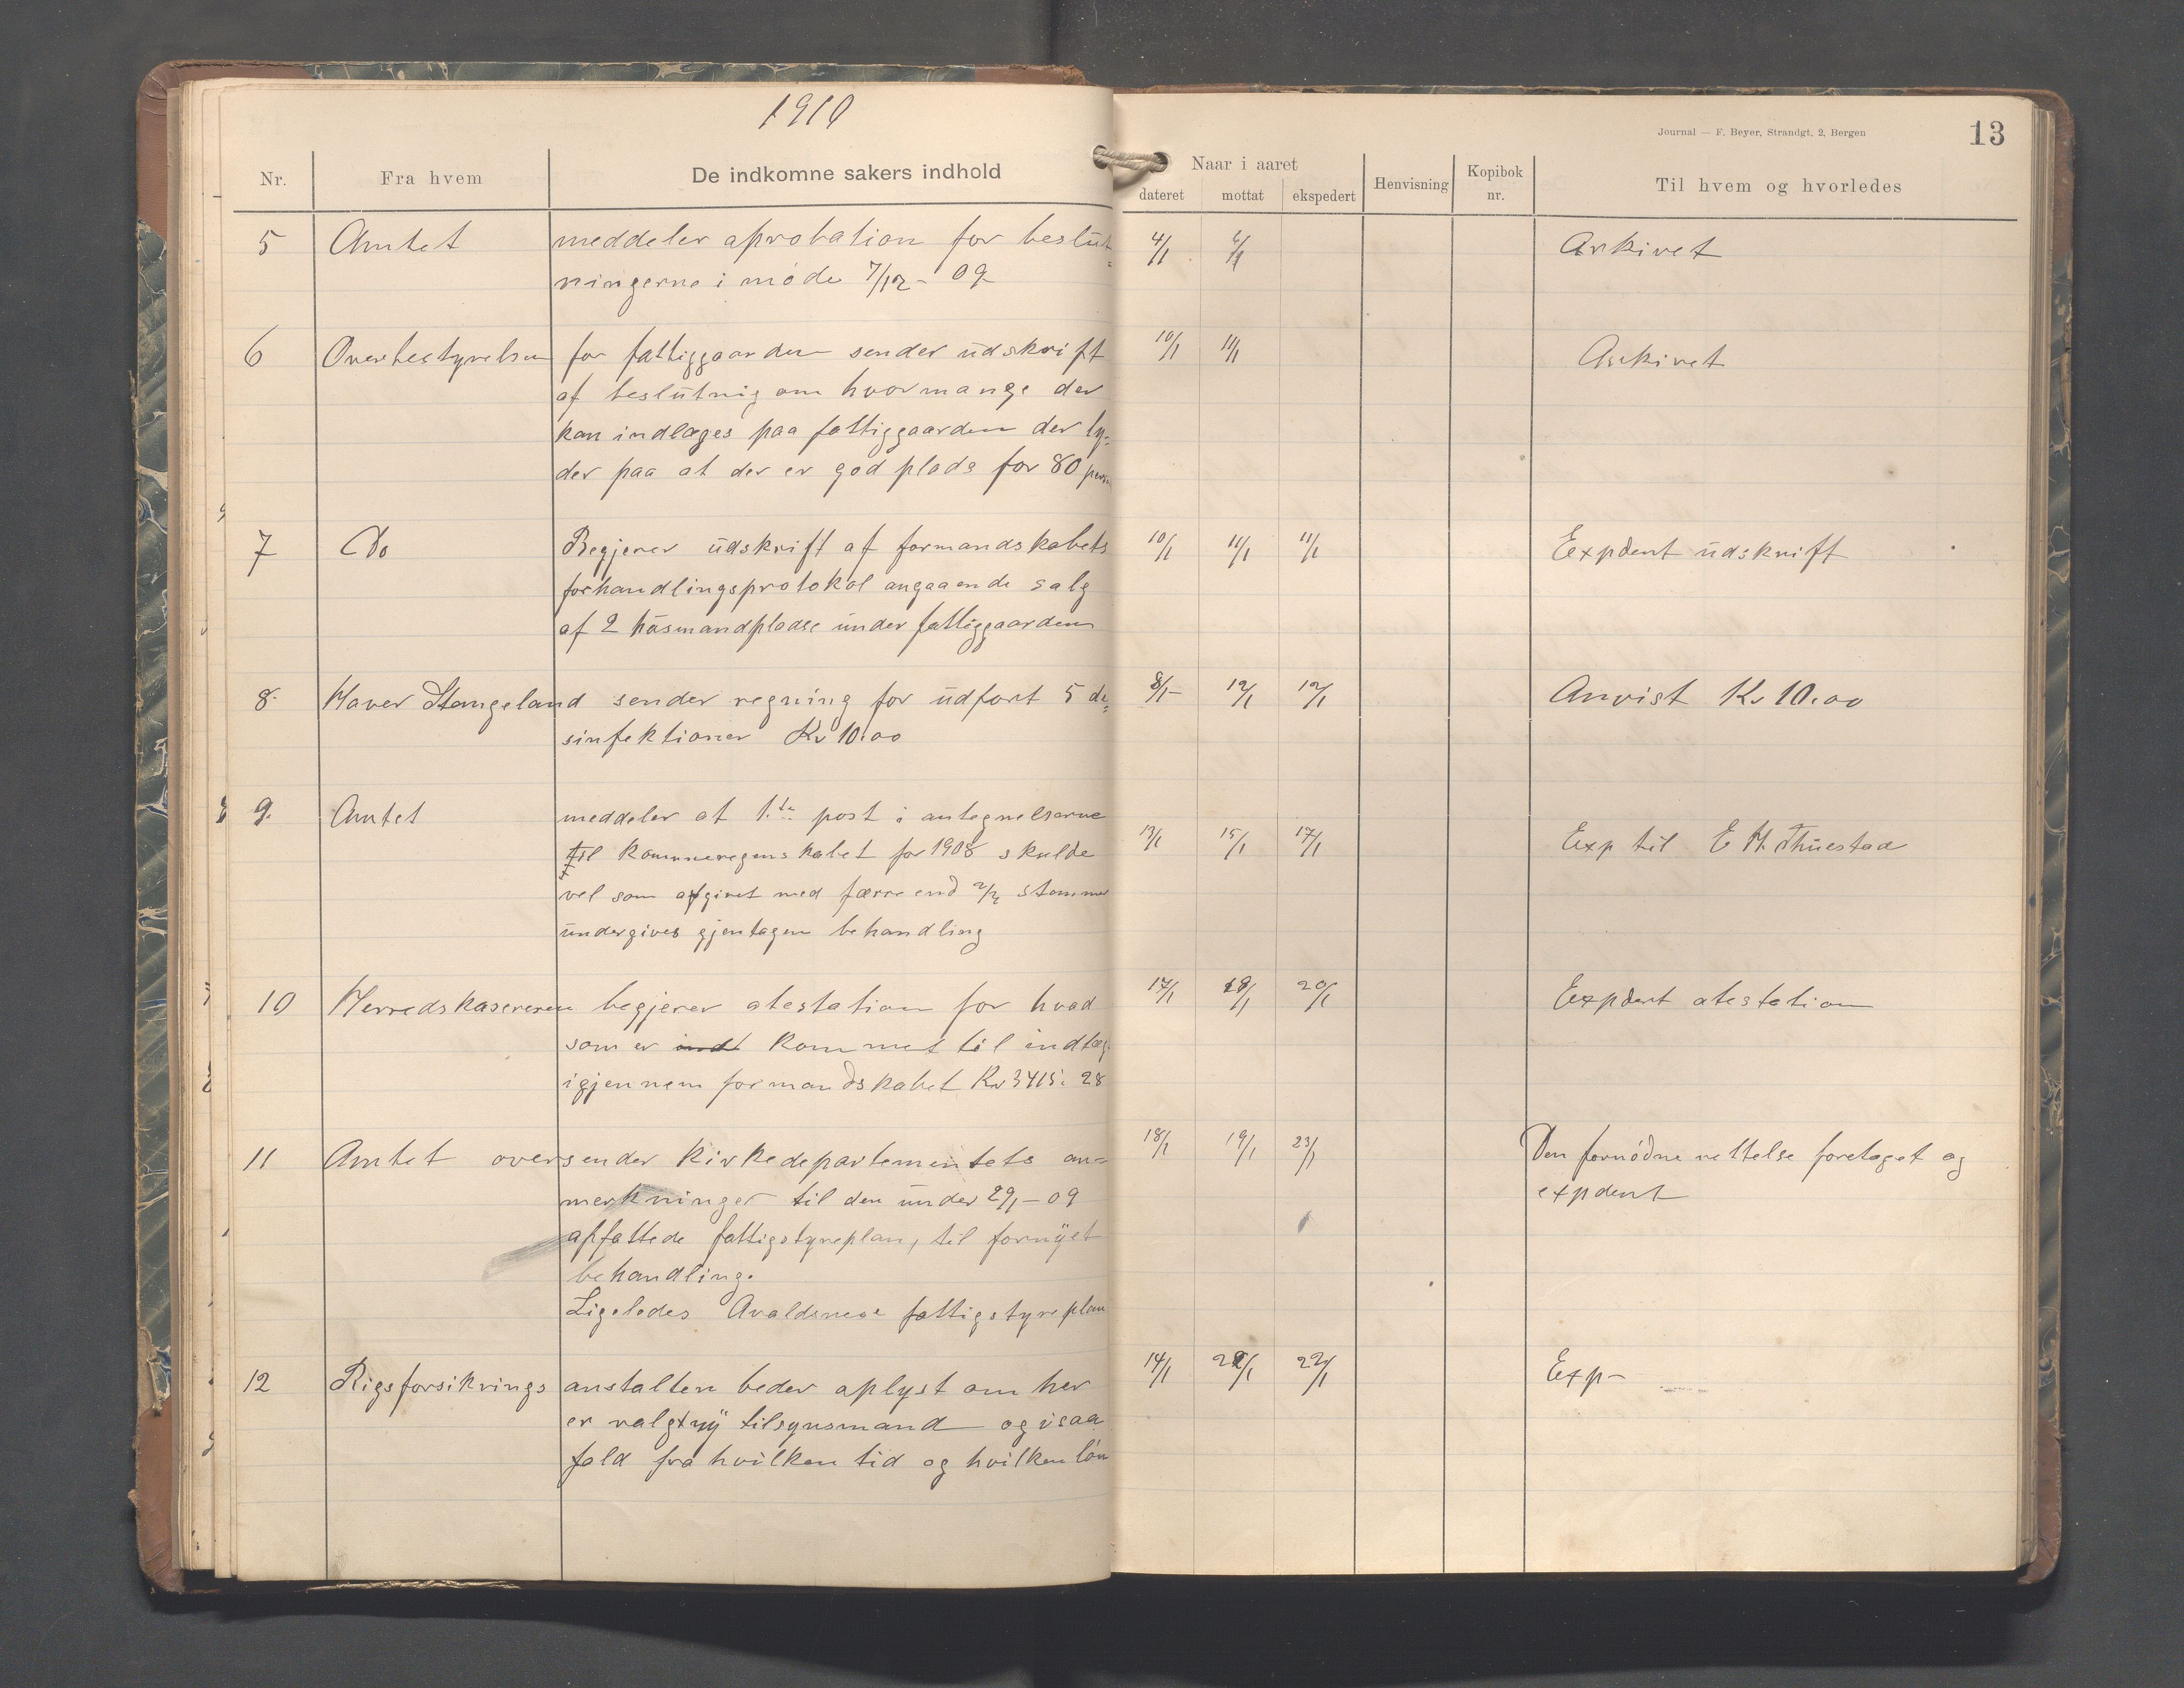 1910
Journal — F. Beyer, Strandgt. 2, Bergen
13
Nr. Fra hvem De indkomne sakers indhold Naar i aaret Henvisning Kopibok nr. Til hvem og hvorledes
dateret mottat ekspedert
5 Amtet meddeler aprobation for beslut= 4/1 6/1 Arkivet
ningerne i møde 7/12 - 09
6 Overbestyrelsen for fattiggaarden sender udskrift 10/1 11/1 Arkivet
af beslutnig om hvormange der
kan indlæges paa fattiggaarden der ly=
der paa at der er god plads for 80
7 Do Begjerer udskrift af formandskabets 10/1 11/1 11/1 Expdert udskrift
forhandlingsprotokol angaaende salg
af 2 husmandpladse under fattiggaarden
8. Haver Stangeland sender regning for udført 5 de= 8/1- 12/1 12/1 Anvist Kr 10.00
sinfektioner Kr 10.00
9. Amtet meddeler at 1.te post i antegnelserne 13/1 15/1 17/1 Exp til E H. Thuestad
til kommeregenskabet for 1908 skulde
vel som afgivet med færre end 2/3 stemmer
undergives gjentagen behandling
10 Herredskasereren begjerer atestation for hvad 17/1 18/1 20/1 Expdert atestation
som er indt kommet til indtæg
igjennem formandskabet Kr 3415. 28
11 Amtet oversender Kirkedepartementets an= 18/1 19/1 23/1 Den fornødne rettelse foretaget og
merkninger til den under 29/1 - 09 expdert
affattede fattigstyreplan, til fornyet
behandling.
Ligeledes Avaldsnese fattigstyreplan
12 Rigsforsikrings anstalten beder oplyst om her 14/1 22/1 Exp-
er valgt ny tilsynsmand og isaa
fald fra hvilken tid og hvilken løn